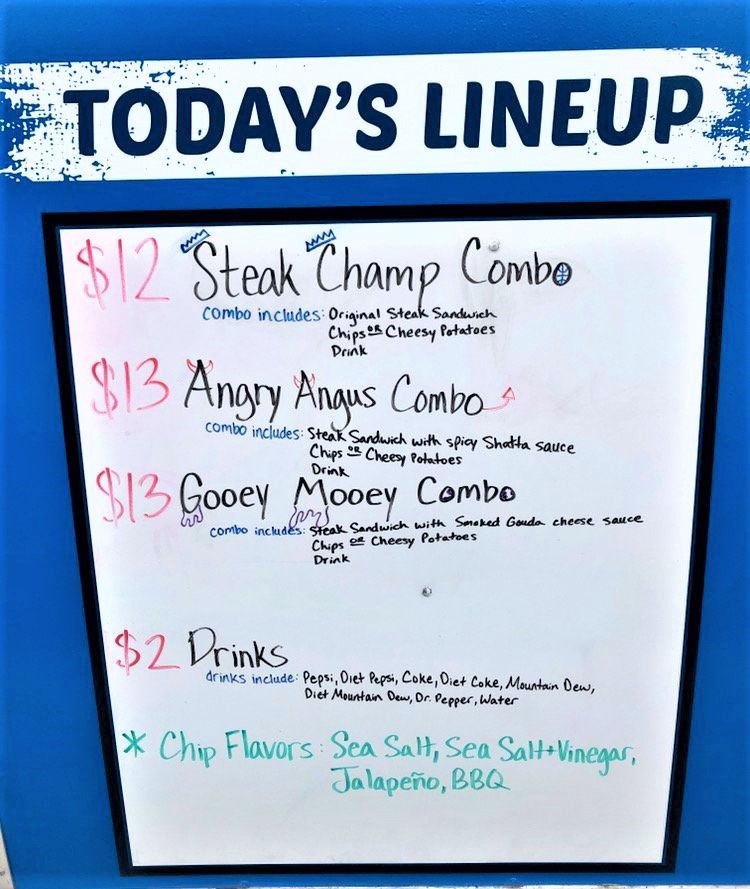 TODAY'S LINEUP
$12 Steak Champ Combo
combo includes: Original Steak Sandwich
Chips OR Cheesy Potatoes
Drink
$13 Angry Angus Combo
combo includes: Steak Sandwich with spicy Shatta sauce
Chips OR Cheesy Potatoes
Drink
$13 Gooey Mooey Combo
combo includes: Steak Sandwich with Smoked Gouda cheese sauce
Chips OR Cheesy Potatoes
Drink
$2 Drinks
drinks include: Pepsi, Diet Pepsi, Coke, Diet Coke, Mountain Dew,
Diet Mountain Dew, Dr. Pepper, Water
* Chip Flavors: Sea Salt, Sea Salt+Vinegar,
Jalapeño, BBQ